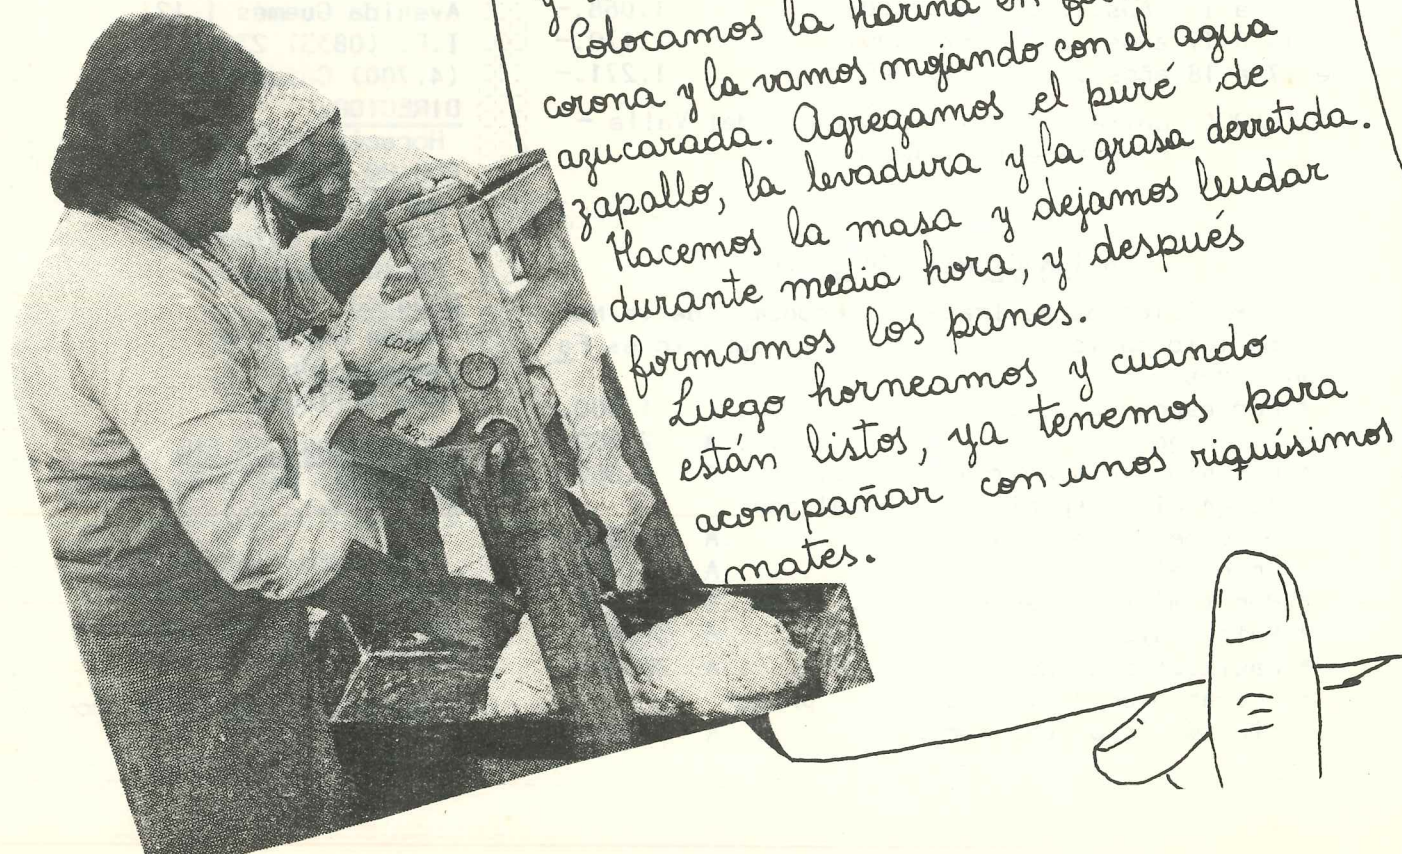 Colocamos la harina en
corona y la vamos mojando con el agua
azucarada. Agregamos el puré de
zapallo, la levadura y la grasa derretida.
Hacemos la masa y dejamos leudar
durante media hora, y después
formamos los panes.
Luego horneamos y cuando
están listos, ya tenemos para
acompañar con unos riquísimos
mates.